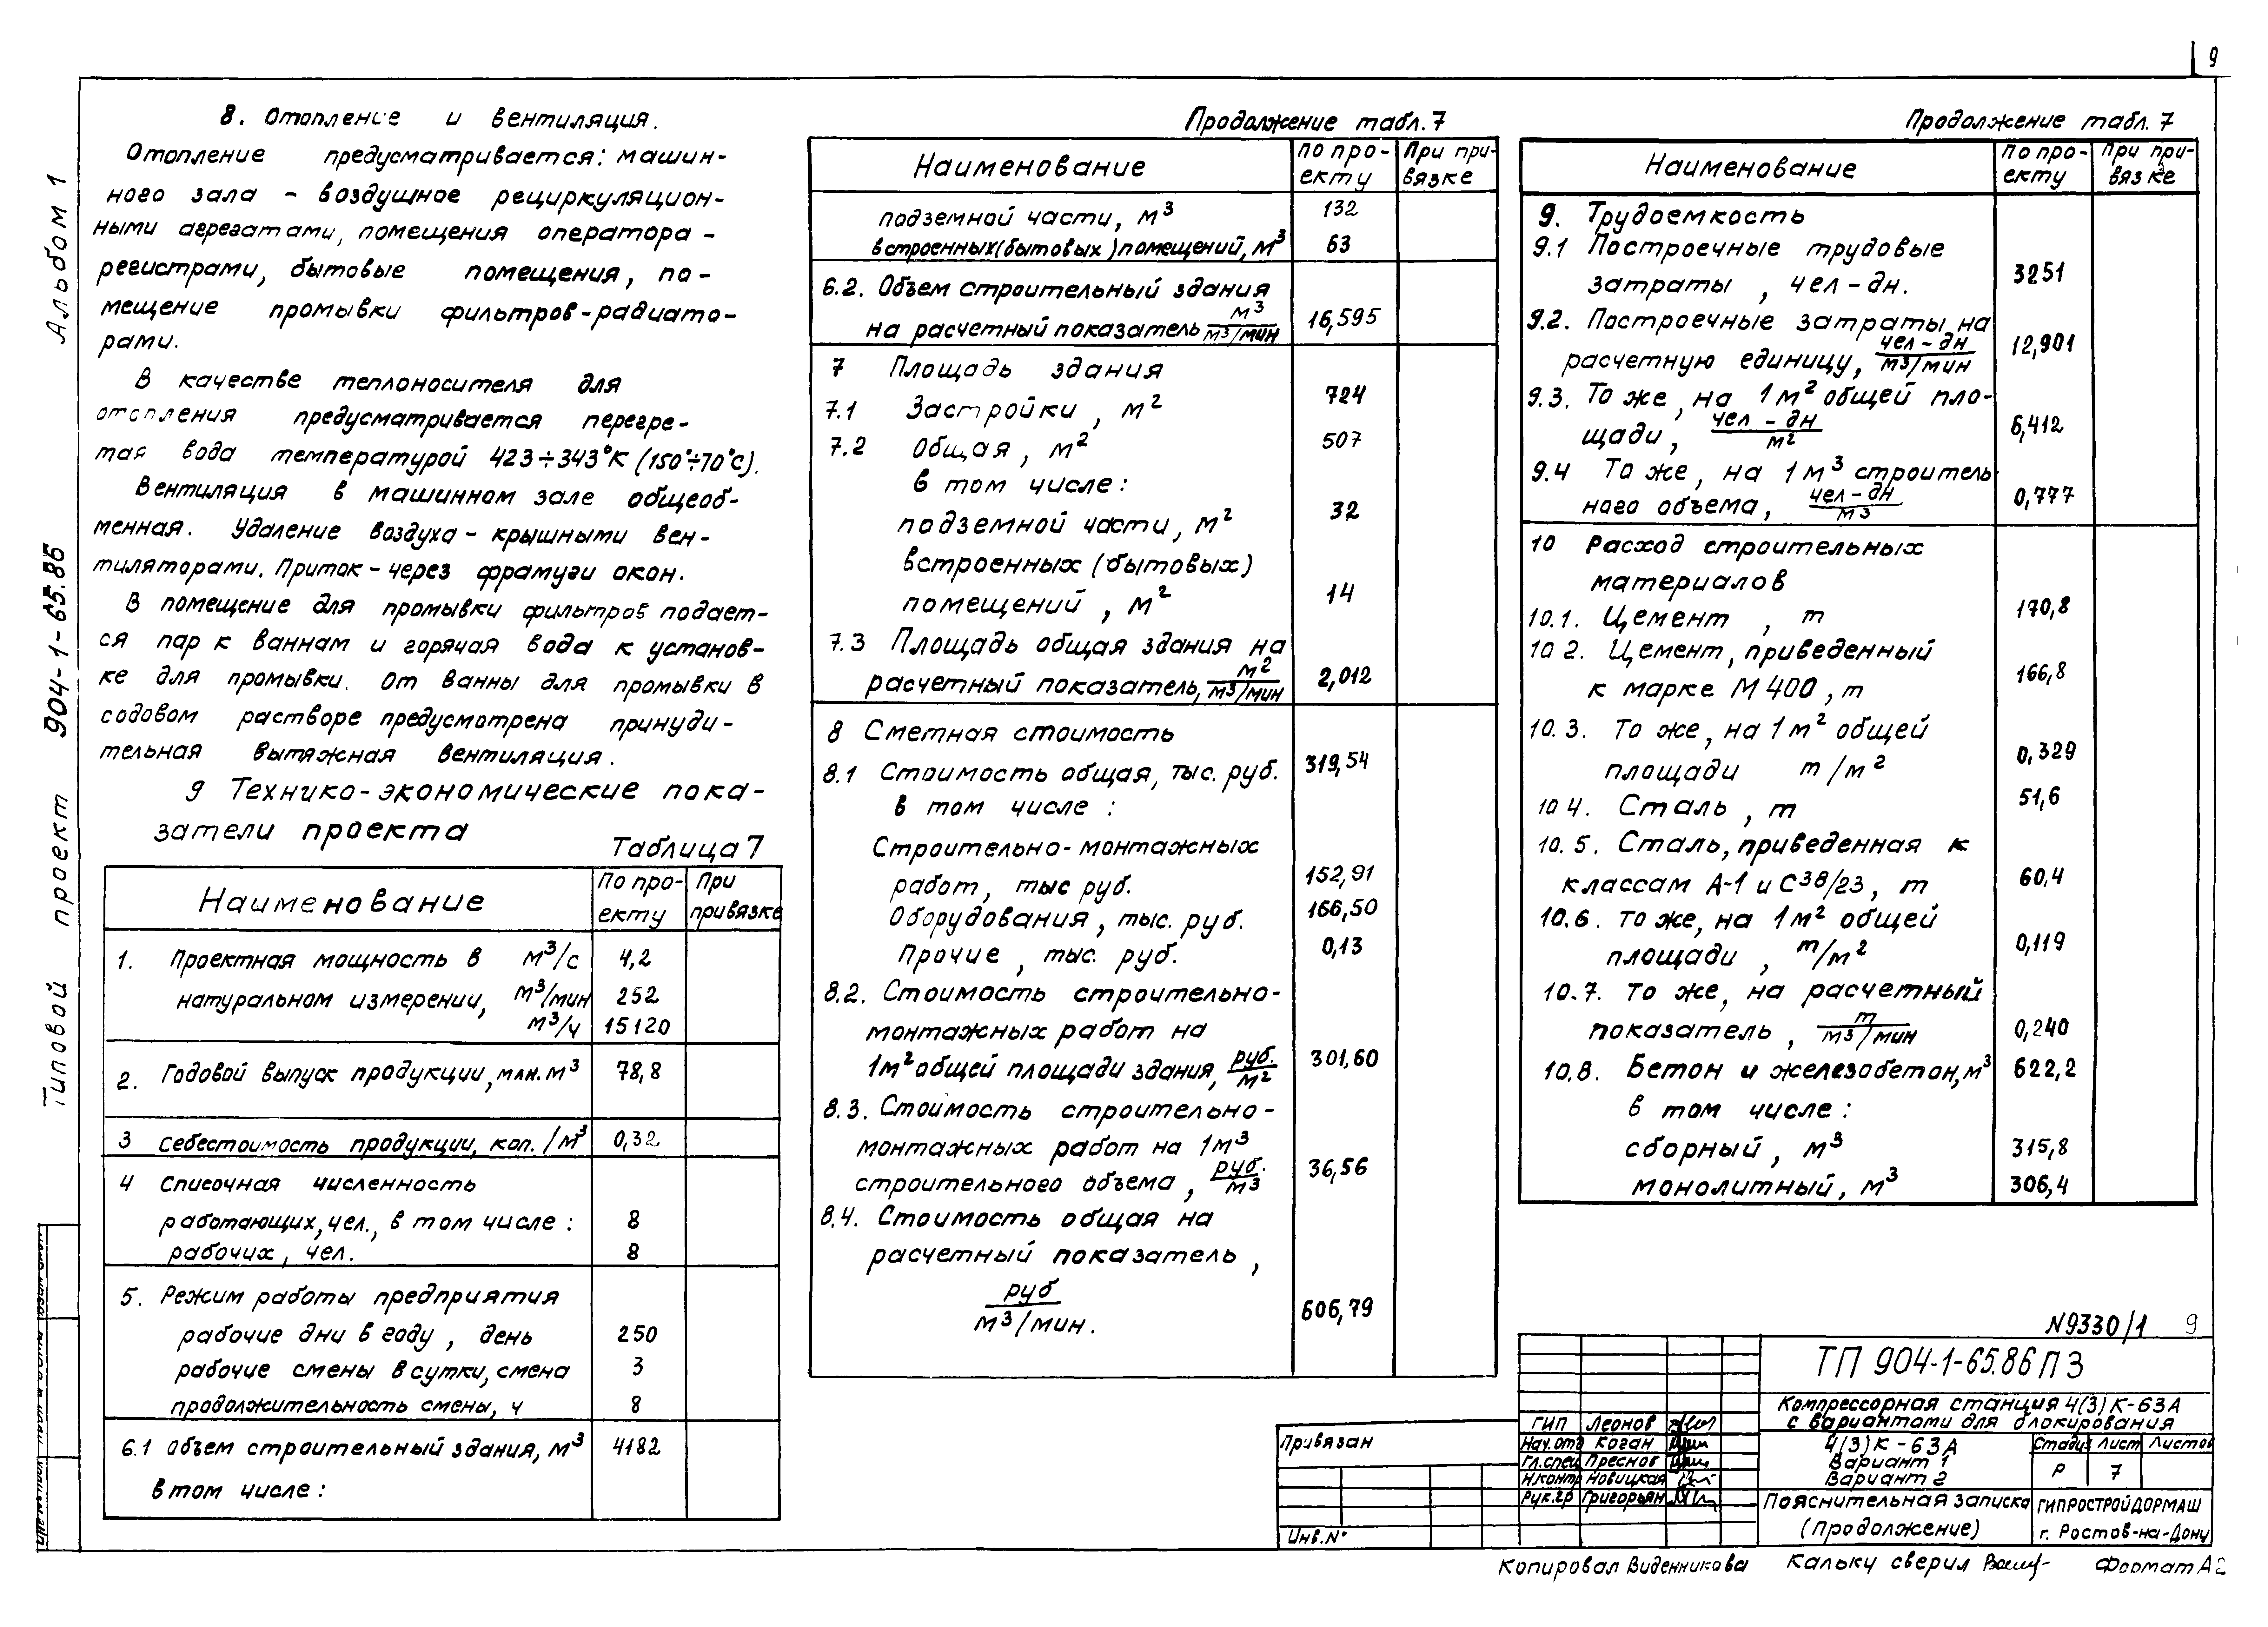 9
Альбом 1
Типовой проект 904-1-65.86
8. Отопление и вентиляция.
Отопление предусматривается: машин-
ного зала - воздушное рециркуляцион-
ными агрегатами, помещения оператора -
регистрами, бытовые помещения, по-
мещение промывки фильтров-радиато-
рами.
В качестве теплоносителя для
отопления предусматривается перегре-
тая вода температурой 423÷343°К (150°÷70°С).
Вентиляция в машинном зале общеоб-
менная. Удаление воздуха - крышными вен-
тиляторами. Приток - через фрамуги окон.
В помещение для промывки фильтров подает-
ся пар к ваннам и горячая вода к установ-
ке для промывки. От ванны для промывки в
содовом растворе предусмотрена принуди-
тельная вытяжная вентиляция.
9 Технико-экономические пока-
затели проекта
Таблица 7
Наименование По про-екту При привязке
1. Проектная мощность в м³/с 4,2
натуральном измерении, м³/мин 252
м³/ч 15120
2. Годовой выпуск продукции, млн. м³ 78,8
3 Себестоимость продукции, коп./м³ 0,32
4 Списочная численность
работающих, чел., в том числе: 8
рабочих, чел. 8
5. Режим работы предприятия
рабочие дни в году, день 250
рабочие смены в сутки, смена 3
продолжительность смены, ч 8
6.1 Объем строительный здания, м³ 4182
в том числе:
Продолжение табл. 7
Наименование По про-екту При при-вязке
подземной части, м³ 132
встроенных (бытовых) помещений, м³ 63
6.2. Объем строительный здания
на расчетный показатель м³/м³/мин 16,595
7 Площадь здания
7.1 Застройки, м² 724
7.2 Общая, м² 507
в том числе:
подземной части, м² 32
встроенных (бытовых)
помещений, м² 14
7.3 Площадь общая здания на
расчетный показатель, м²/м³/мин 2,012
8 Сметная стоимость
8.1 Стоимость общая, тыс. руб. 319,54
в том числе:
Строительно-монтажных
работ, тыс руб. 152,91
Оборудования, тыс. руб. 166,50
Прочие, тыс. руб. 0,13
8.2. Стоимость строительно-
монтажных работ на
1м² общей площади здания, руб./м² 301,60
8.3. Стоимость строительно-
монтажных работ на 1м³
строительного объема, руб./м³ 36,56
8.4. Стоимость общая на
расчетный показатель,
руб/м³/мин. 606,79
Продолжение табл. 7
Наименование По про-екту При при-вязке
9. Трудоемкость
9.1 Построечные трудовые
затраты, чел-дн. 3251
9.2. Построечные затраты на
расчетную единицу, чел-дн/м³/мин 12,901
9.3. То же, на 1м² общей пло-
щади, чел-дн/м² 6,412
9.4 То же, на 1м³ строитель-
ного объема, чел-дн/м³ 0,777
10 Расход строительных
материалов
10.1. Цемент, т 170,8
10 2. Цемент, приведенный
к марке М400, т 166,8
10.3. То же, на 1м² общей
площади т/м² 0,329
10 4. Сталь, т 51,6
10.5. Сталь, приведенная к
классам А-1 и С38/23, т 60,4
10.6. То же, на 1м² общей
площади, т/м² 0,119
10.7. То же, на расчетный
показатель, т/м³/мин 0,240
10.8. Бетон и железобетон, м³ 622,2
в том числе:
сборный, м³ 315,8
монолитный, м³ 306,4
N9330/1 9
ТП 904-1-65.86 ПЗ
Компрессорная станция 4(3)К-63А
с вариантами для блокирования
ГИП Леонов
Нач. отд Коган
Гл.спец Преснов
Н.контр Новицкая
Рук.гр Григорьян
4(3)К-63А
Вариант 1
Вариант 2
Стадия Лист Листов
Р 7
Пояснительная записка
(продолжение)
ГИПРОСТРОЙДОРМАШ
г. Ростов-на-Дону
Привязан
Инв.N°
Копировал Виденникова Кальку сверил Формат А2